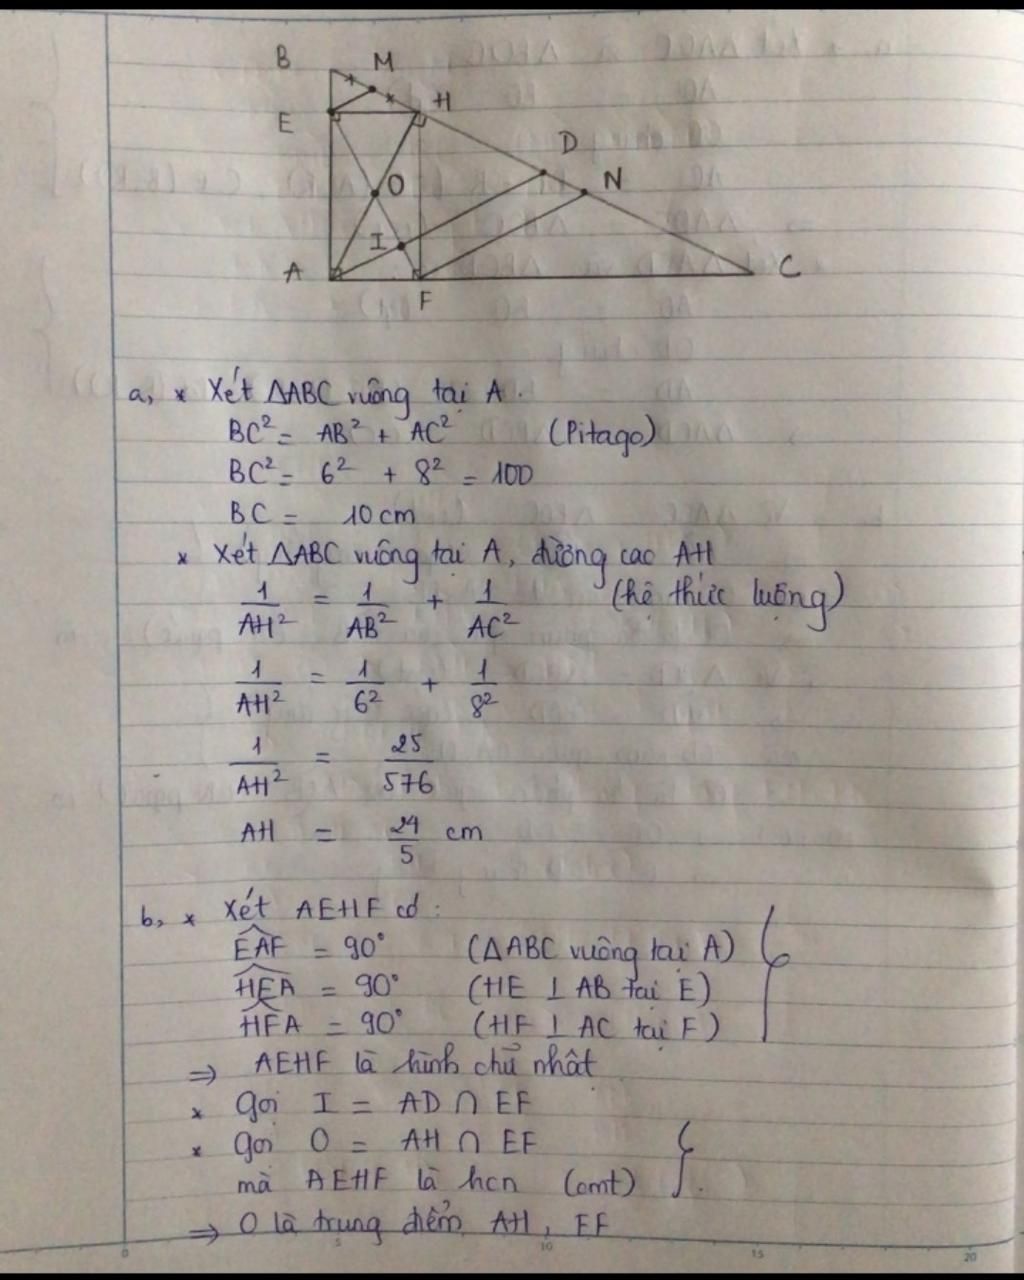 B
M
E
H
D
O
N
I
A
F
C
a, * Xét ΔABC vuông tại A.
BC² = AB² + AC² (Pitago)
BC² = 6² + 8² = 100
BC = 10 cm
* Xét ΔABC vuông tại A, đường cao AH
1/AH² = 1/AB² + 1/AC² (hệ thức lượng)
1/AH² = 1/6² + 1/8²
1/AH² = 25/576
AH = 24/5 cm
b, * Xét AEHF có:
EAF = 90° (ΔABC vuông tại A)
HEA = 90° (HE ⊥ AB tại E)
HFA = 90° (HF ⊥ AC tại F)
⇒ AEHF là hình chữ nhật
* Gọi I = AD ∩ EF
* Gọi O = AH ∩ EF
mà AEHF là hcn (cmt)
⇒ O là trung điểm AH, EF
0 5 10 15 20